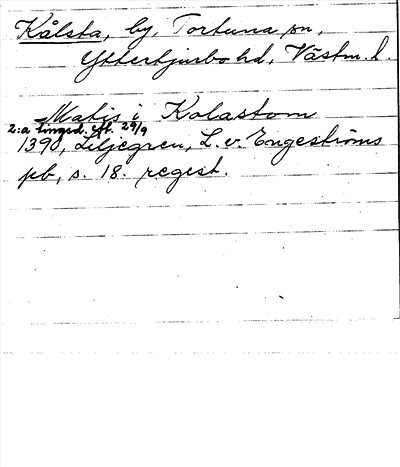 Kålsta, by, Tortuna sn,
Ytterjusbo hd, Västm. l.
Matis i Kolastom
2:a tingsd. eft. 29/9
1390, Liljegren, L. v. Engeströms
pb, s. 18. regest.